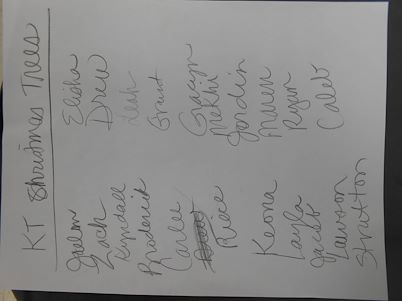 KT Christmas Trees
Elisha
Drew
Leah
Grant
Gracyn
Mekhi
Jordin
Maren
Ryan
Caleb
Zach
Kendall
Broderick
Carlee
Reice
Keona
Layla
Jacob
Lawson
Stratton